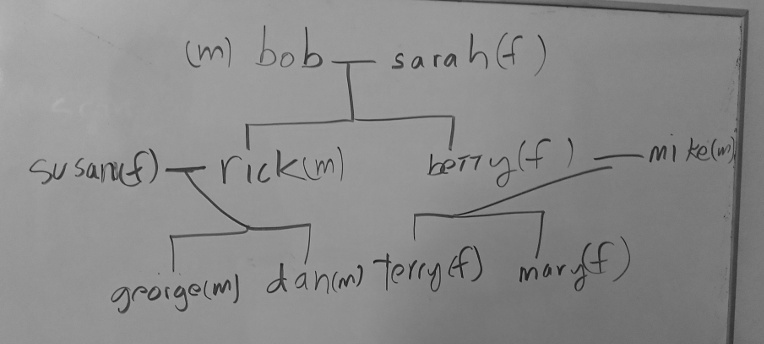 (m) bob sarah(f)
susan(f) rick(m) betty(f) mike(m)
george(m) dan(m) terry(f) mary(f)